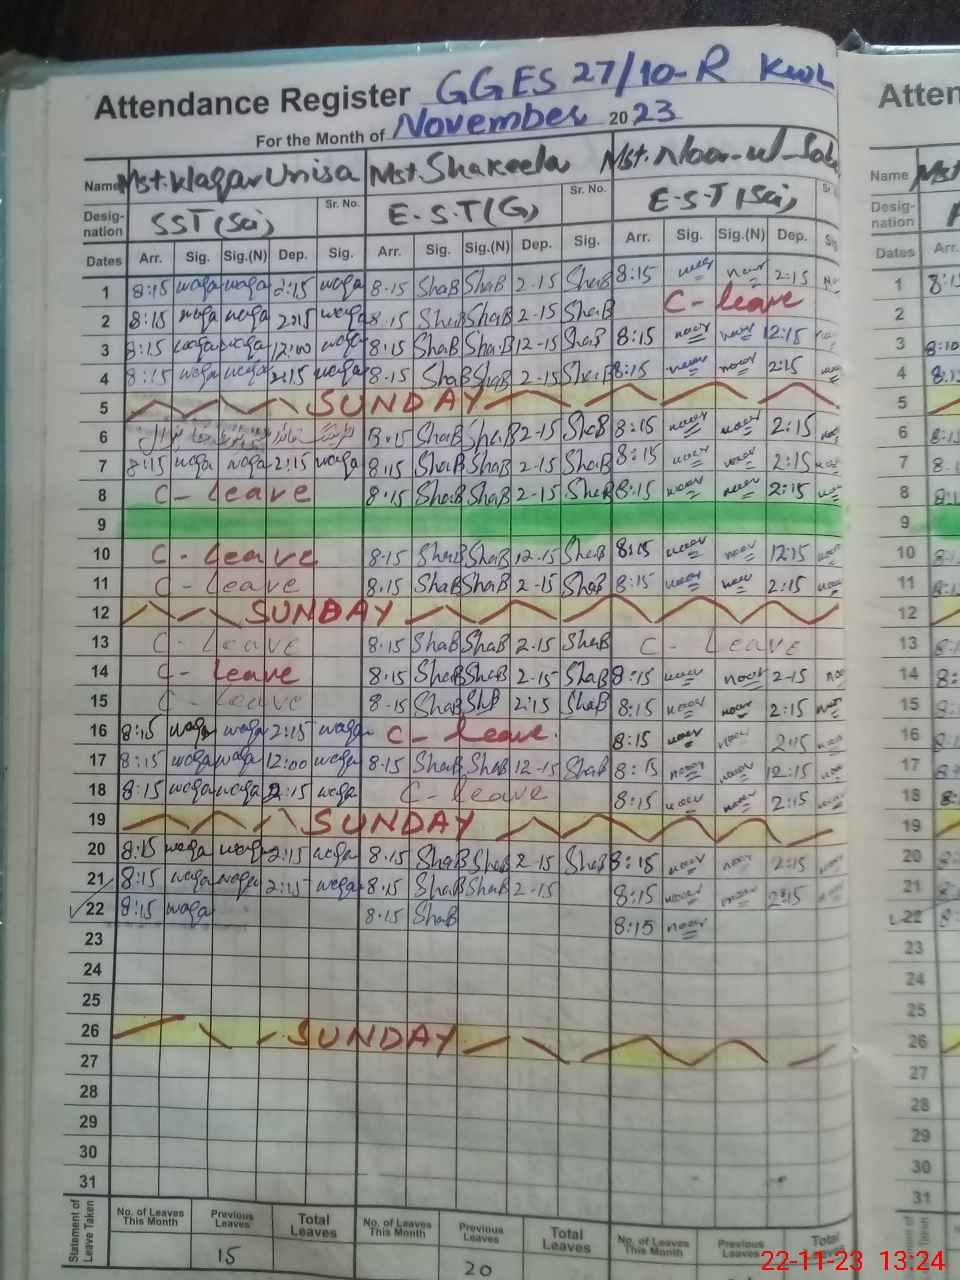 Attendance Register GGES 27/10-R KWL
For the Month of November 2023
Name Mst. Waqar Unisa Mst. Shakeela Mst. Noor-ul-
Desig-nation SST (Sci) Sr. No. E.S.T (G) Sr. No. E.S.T (Sci)
Dates Arr. Sig. Sig.(N) Dep. Sig. Arr. Sig. Sig.(N) Dep. Sig. Arr. Sig. Sig.(N) Dep. Sig
1 8:15 waqa waqa 2:15 waqa 8.15 ShaB ShaB 2-15 ShaB 8:15 noor noor 2:15
2 8:15 waqa waqa 2:15 waqa 8.15 ShaB ShaB 2-15 ShaB C-leave
3 8:15 waqa waqa 12:00 waqa 8.15 ShaB ShaB 12-15 ShaB 8:15 noor noor 12:15
4 8:15 waqa waqa 2:15 waqa 8.15 ShaB ShaB 2-15 ShaB 8:15 noor noor 2:15
5 SUNDAY
6 8.15 ShaB ShaB 2-15 ShaB 8:15 noor noor 2:15 noor
7 8:15 waqa waqa 2:15 waqa 8.15 ShaB ShaB 2-15 ShaB 8:15 noor noor 2:15 noor
8 C-leave 8.15 ShaB ShaB 2-15 ShaB 8:15 noor noor 2:15
9
10 C-leave 8.15 ShaB ShaB 12-15 ShaB 8:15 noor noor 12:15 noor
11 C-leave 8.15 ShaB ShaB 2-15 ShaB 8:15 noor noor 2:15 noor
12 SUNDAY
13 C-Leave 8.15 ShaB ShaB 2-15 ShaB C-Leave
14 C-leave 8.15 ShaB ShaB 2-15 ShaB 8:15 noor noor 2-15 noor
15 C-leave 8.15 ShaB ShB 2:15 ShaB 8:15 noor noor 2:15 noor
16 8:15 waqa waqa 2:15 waqa C-leave. 8:15 noor noor 2:15 noor
17 8:15 waqa waqa 12:00 waqa 8.15 ShaB ShaB 12-15 ShaB 8:15 noor noor 12:15 noor
18 8:15 waqa waqa 2:15 waqa C-leave 8:15 noor noor 2:15 noor
19 SUNDAY
20 8:15 waqa waqa 2:15 waqa 8.15 ShaB ShaB 2-15 ShaB 8:15 noor noor 2:15 noor
21 8:15 waqa waqa 2:15 waqa 8.15 ShaB ShaB 2-15 8:15 noor noor 2:15 noor
22 8:15 waqa 8.15 ShaB 8:15 noor
23
24
25
26 SUNDAY
27
28
29
30
31
Statement of Leave Taken No. of Leaves This Month Previous Leaves Total Leaves No. of Leaves This Month Previous Leaves Total Leaves No. of Leaves This Month Previous Total
15 20
Atten
Name Mst
Desig-nation
Dates Arr.
1 8:15
2
3 8:10
4 8:15
5
6 8:15
7 8.
8 8:15
9
10
11
12
13
14
15
16
17
18
19
20
21
22
23
24
25
26
27
28
29
30
31
22-11-23 13:24